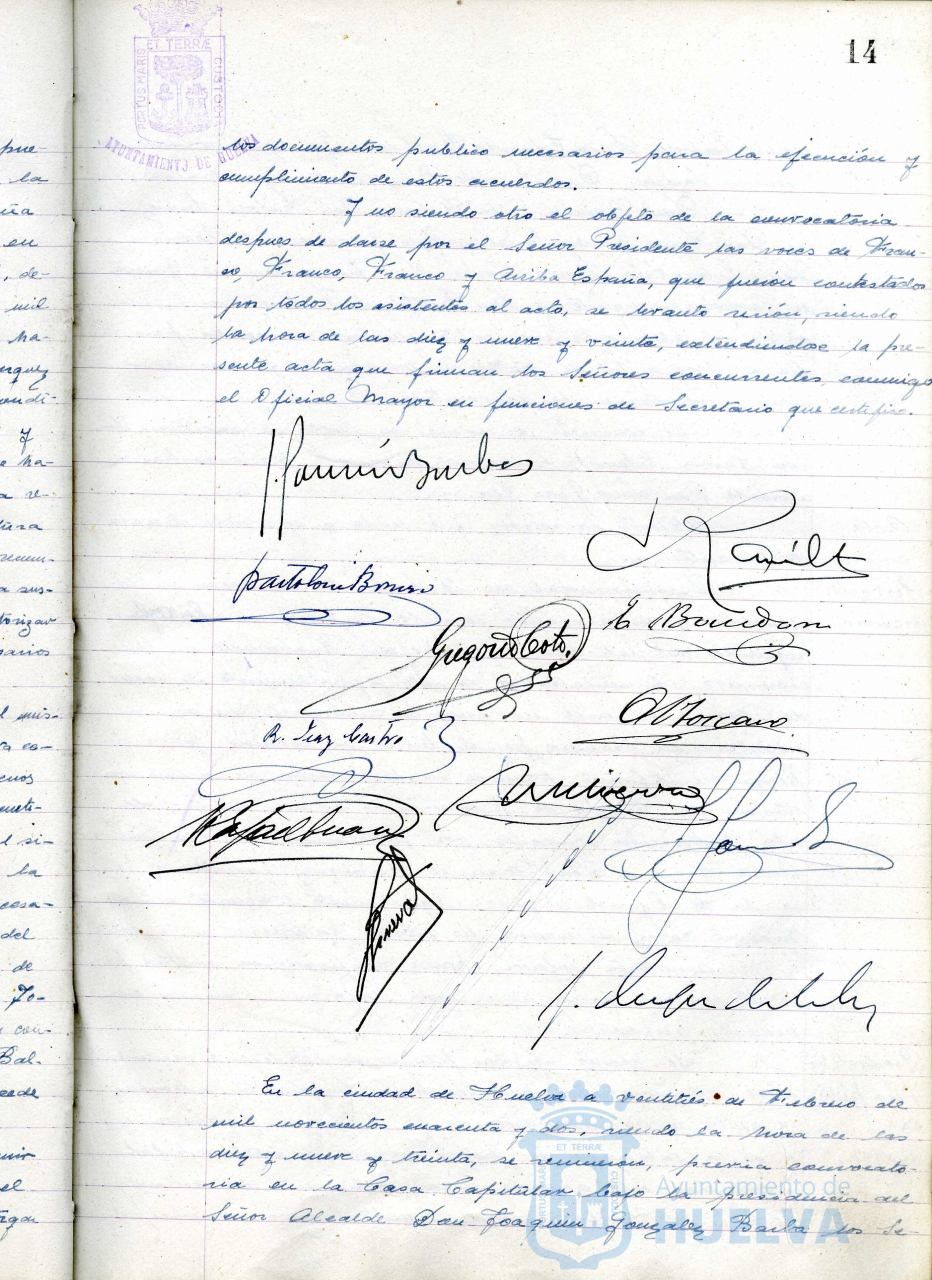 14
PORTUS MARIS ET TERRÆ CUSTODIA
AYUNTAMIENTO DE HUELVA
los documentos publico necesarios para la ejecución y
cumplimiento de estos acuerdos.
Y no siendo otro el objeto de la convocatoria
despues de darse por el Señor Presidente las voces de Fran-
co, Franco, Franco y Arriba España, que fueron contestados
por todos los asistentes al acto, se levanto sesión, siendo
la hora de las diez y nueve y veinte, extendiendose la pre-
sente acta que firman los Señores concurrentes conmigo
el Oficial Mayor en funciones de Secretario que certifico.
Gregorio Coto.
R. Diaz Castro
En la ciudad de Huelva a ventitrés de Febrero de
mil novecientos cuarenta y dos, siendo la hora de las
diez y nueve y treinta, se reunieron, previa convocato-
ria en la Casa Capitular bajo la presidencia del
Señor Alcalde Don Joaquin Gonzalez Barba los Se-
ET TERRÆ
Ayuntamiento de
HUELVA
pue-
la
en
de-
mil
ha-
y
la
del
de
Bal-
cede
el